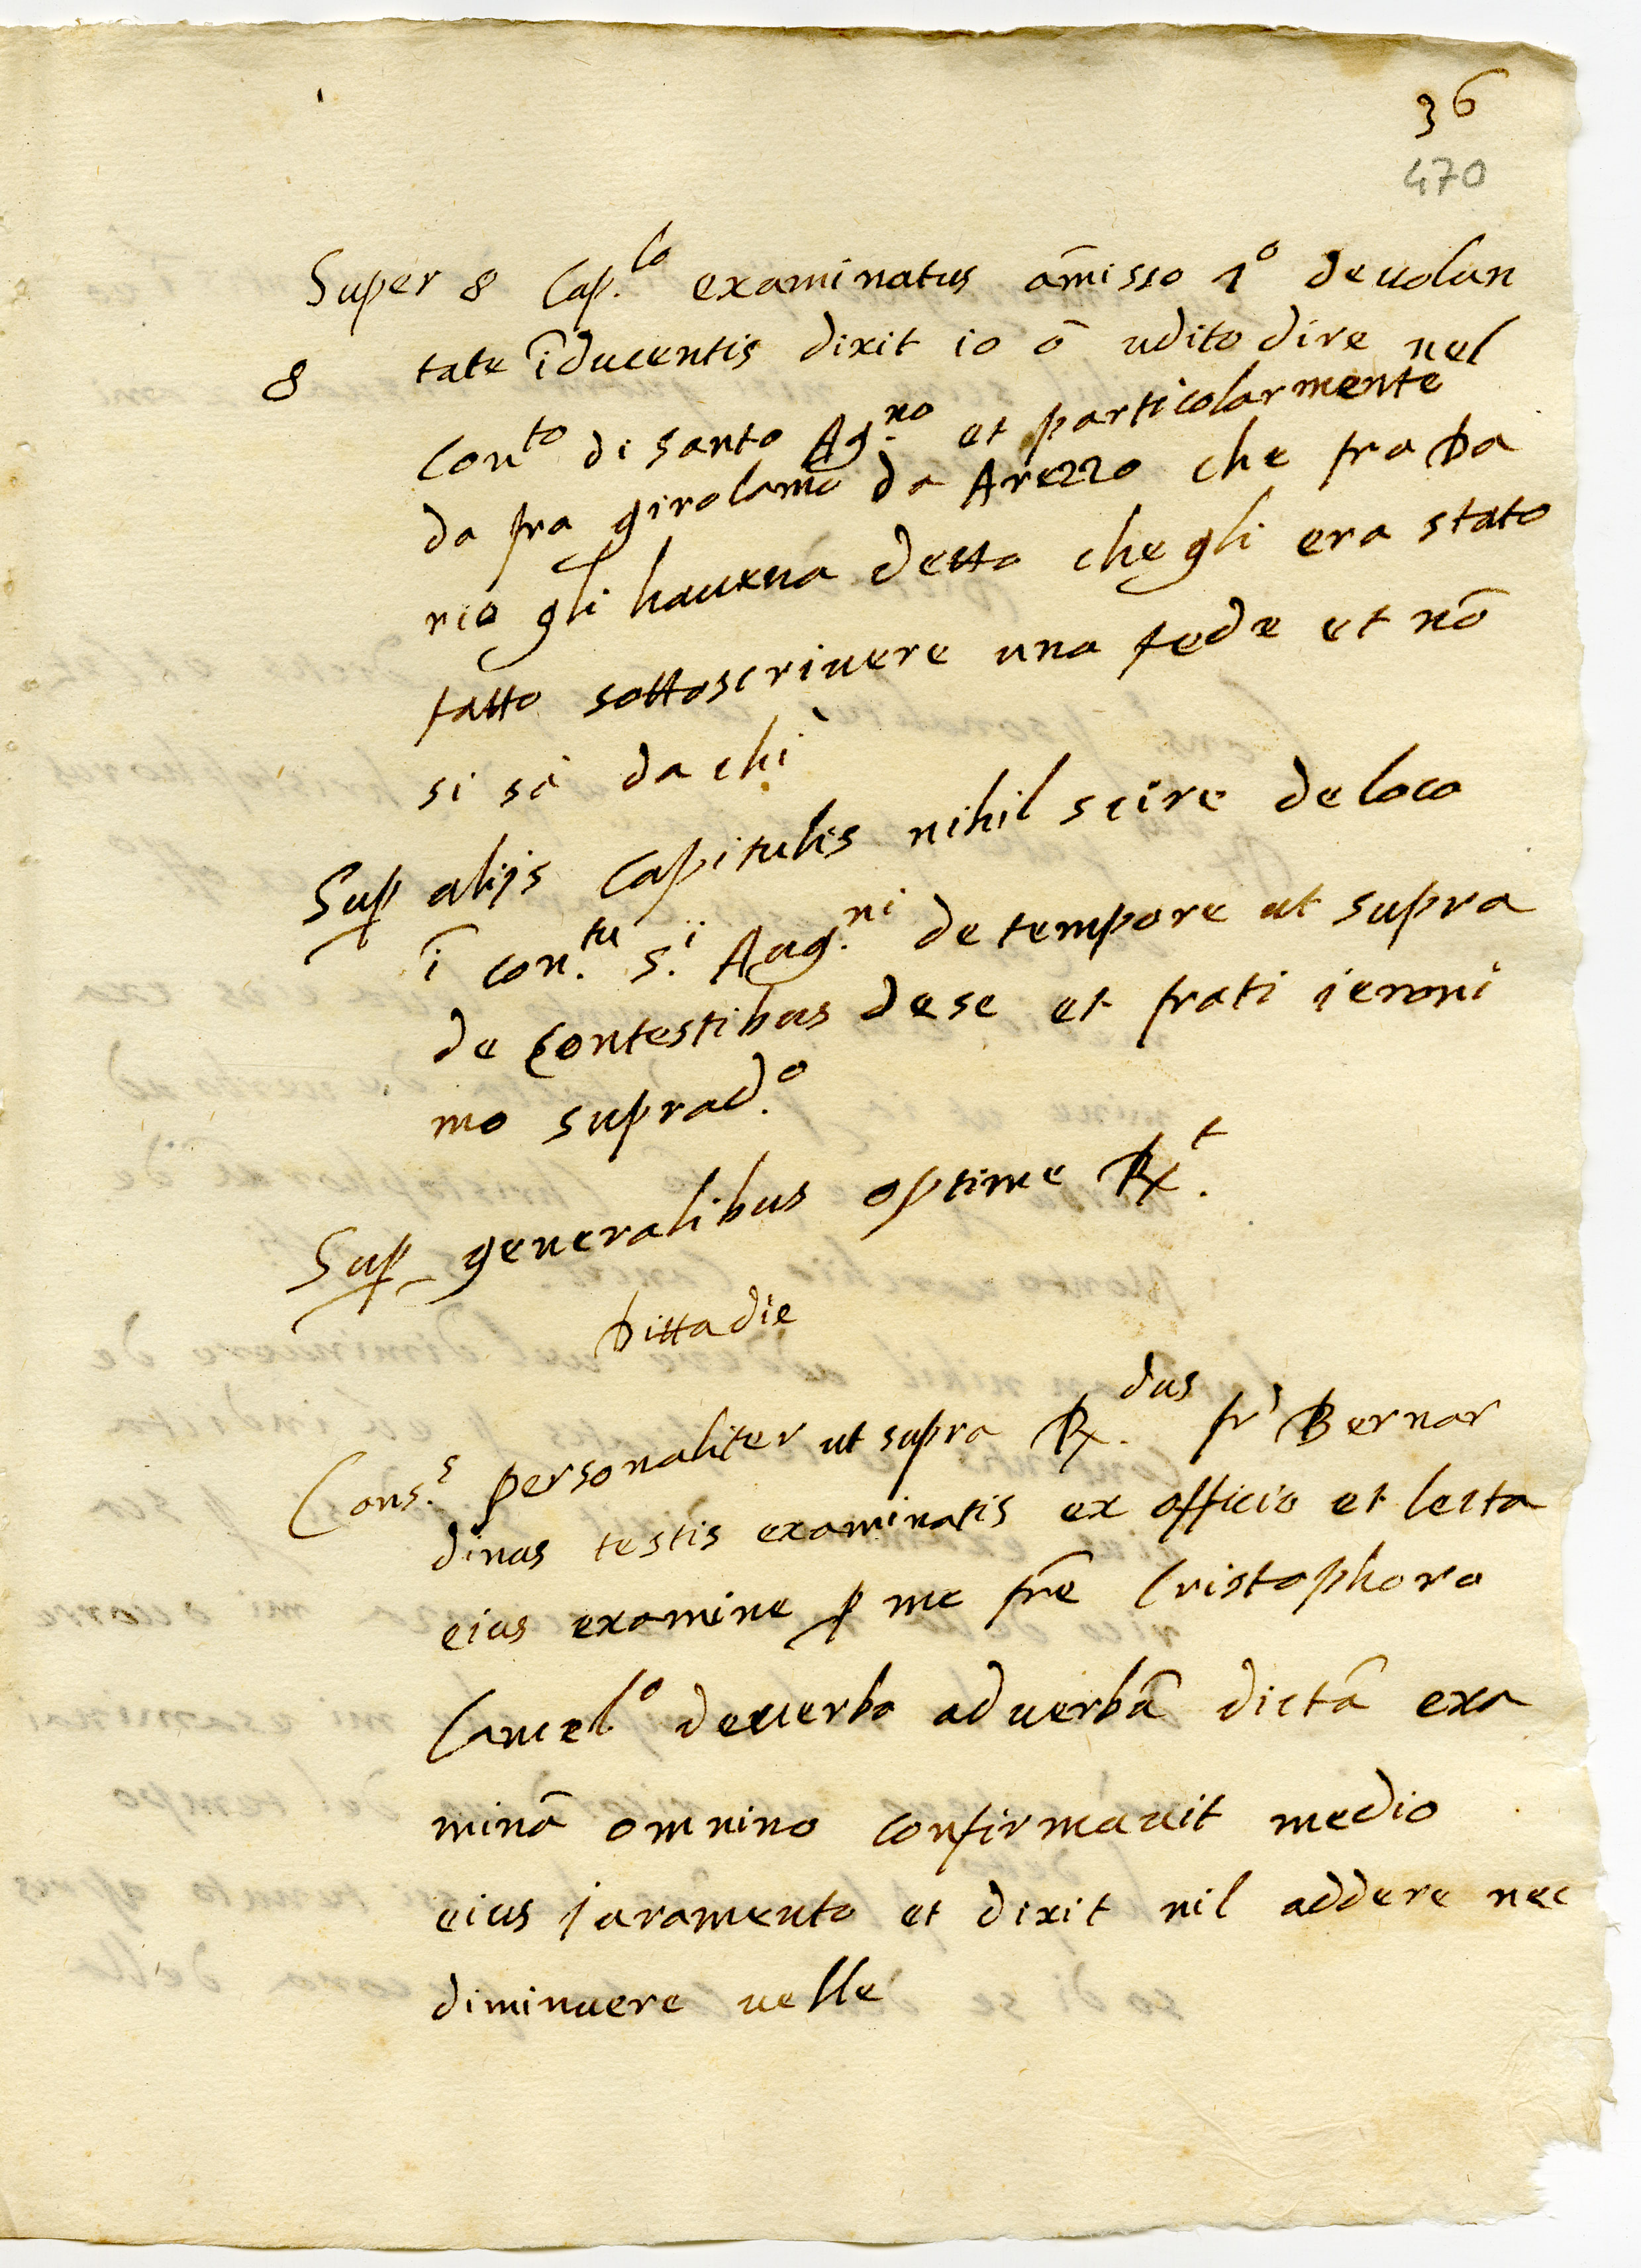 36
470
Super 8 Cap.lo examinatus am̄isso 1º de uolun
8 tate īducentis dixit io ō udito dire nel
Conto di santo Ag.no et particolarmente
da fra girolamo da Arezzo che fra Da
nio gli haueua detto che gli era stato
fatto sottoscriuere una fede et nō
si sà da chi
Sup alijs Capitulis nihil scire de loco
ī con.tu S.i Aug.ni de tempore ut supra
de contestibus de se et frati ieroni
mo suprad.o
Sup generalibus optime R.t
Ditta die
Cons.s personaliter ut supra R.dus fr Bernar
dinus testis examinatis ex officio et lecta
eius examine p me frē Cristophoro
Cancel.o de uerbo ad uerbū dictā exa
minā omnino confirmauit medio
eius juramento et dixit nil addere nec
diminuere uelle